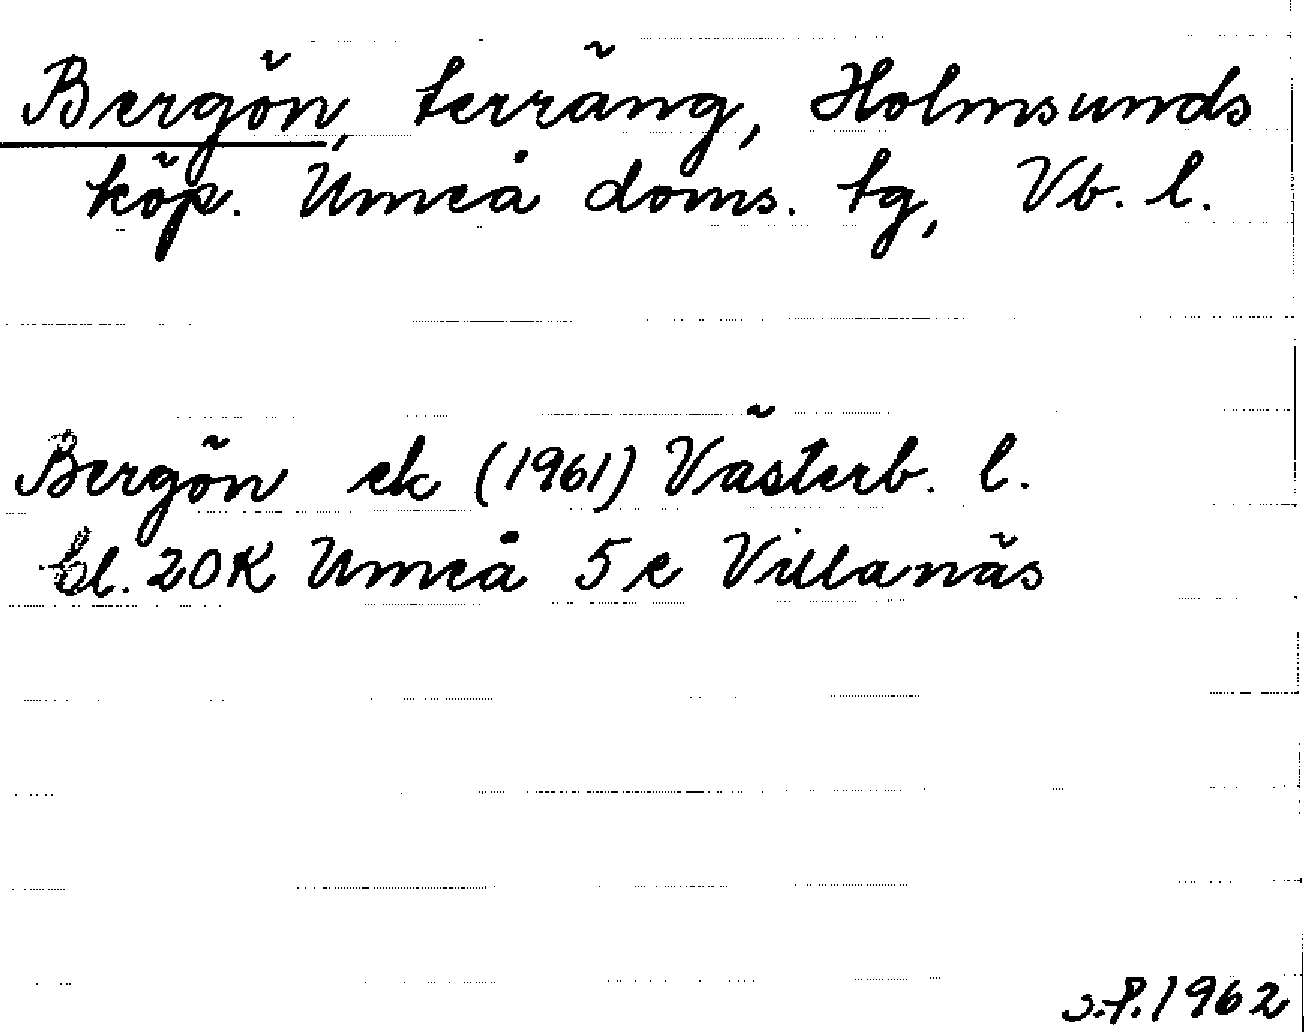 Bergön, terräng, Holmsunds
köp. Umeå doms. tg, Vb. l.
Bergön ek (1961) Västerb. l.
bl. 20K Umeå 5e Villanäs
s.f. 1962